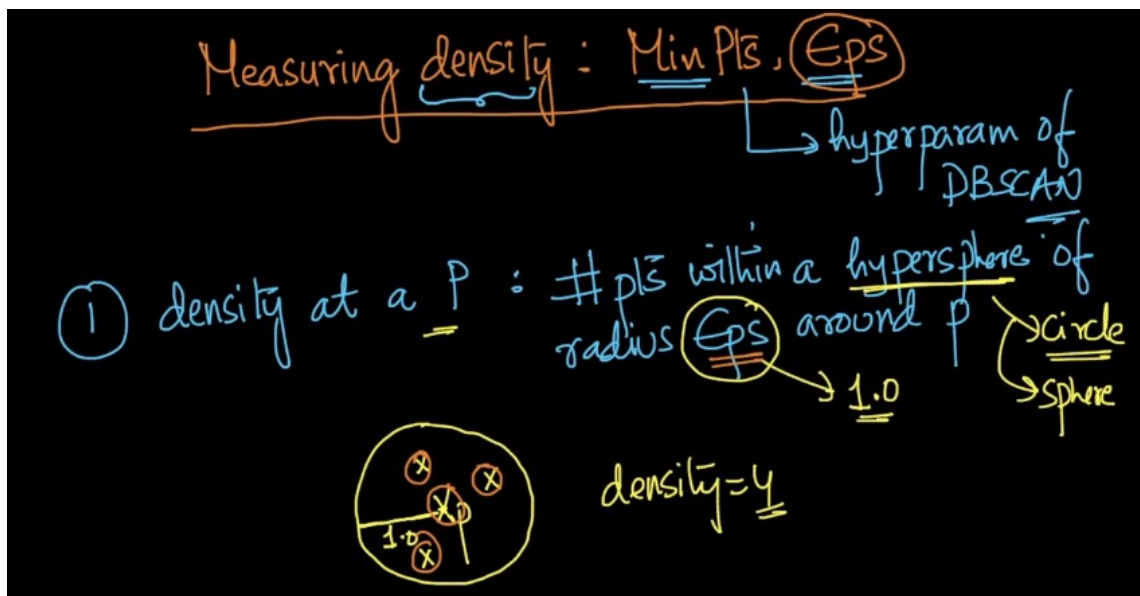 Measuring density : MinPts, Eps
hyperparam of
DBSCAN
1 density at a P : #pts within a hypersphere of
radius Eps around p
circle
sphere
1.0
x x
x p
1.0
x
density=4